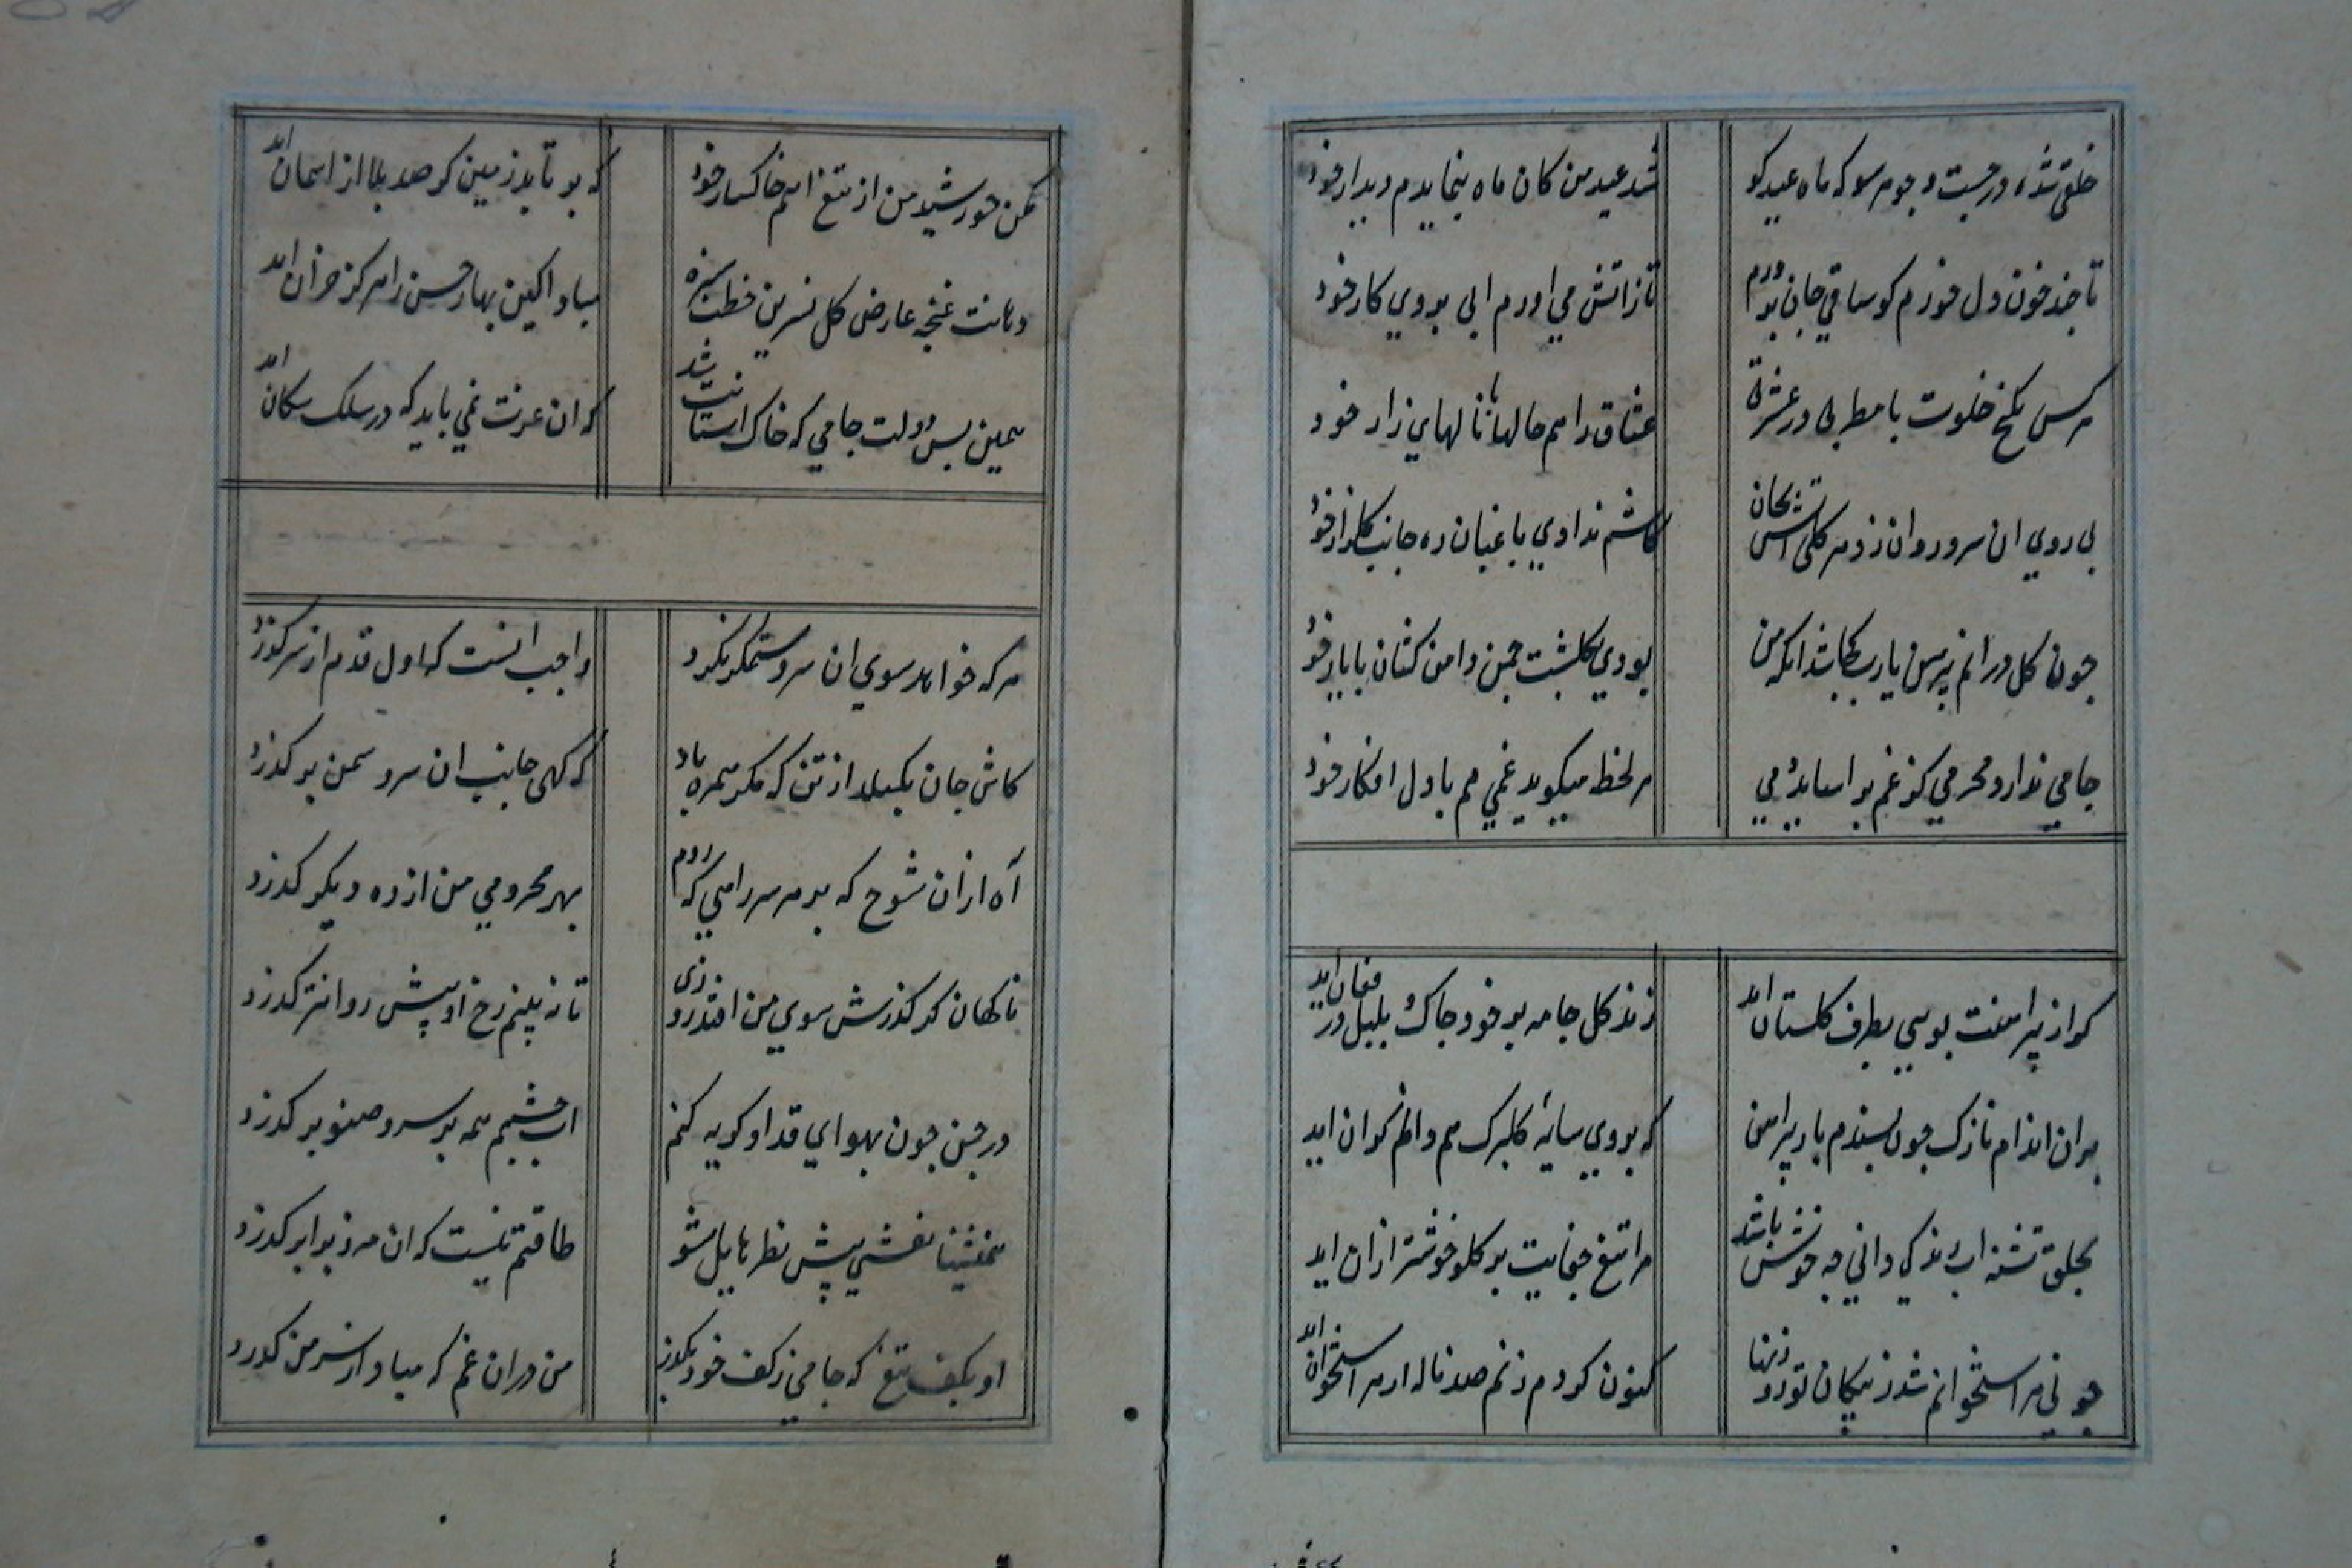 خلقی شده در جست و جو هر سو که ماه عید کو
شد عید من کان ماه بنمایدم دیدار خود
تا چند خون دل خورم کو ساقی جان پرورم
تا ز اتش می اورم ابی بروی کار خود
هر کس بکنج خلوت با مطربی در عشرتی
عشاق را هم حالها با نالهای زار خود
بی روی ان سرو روان زد هر کلی اتش بجان
کاشم ندادی باغبان ره جانب کلزار خود
چون کل درانم پیرهن یا رب کجا شد انکه من
بودی بکلشت چمن دامن کشان با یار خود
جامی ندارد محرمی کز غم بر اساید دمی
هر لحظه میکوید غمی هم با دل افکار خود
کر از پیراهنت بویی بطرف کلستان اید
زند کل جامه بر خود چاک و بلبل در فغان اید
بران اندام نازک چون پسندم بار پیراهن
که بر وی سایه کلبرک هم دانم کران اید
بحلق تشنه اب زندکی دانی چه خوش باشد
مرا تیغ جفایت بر کلو خوشتر ازان اید
چو نی هر استخوانم شد ز پیکان تو روزنها
کنون کر دم زنم صد ناله از هر استخوان اید
مکن خورشید من از تیغ اهم خاکسار خود
که بر تابد زمین کو صد بلا از اسمان اید
دهانت غنچه عارض کل نسرین خطت سبزه
مباد اکین بهار حسن را هرکز خزان اید
همین بس دولت جامی که خاک استانت شد
که ان عزت نمی باید که در سلک سکان اید
هر که خواهد سوی ان سرو ستمکر بکذرد
واجب انست که اول قدم از سر کذرد
کاش جان بکسلد از تن که مکر همره باد
که کهی جانب ان سرو سمن بر کذرد
آه ازان شوخ که بر هر سر راهی که روم
بهر محرومی من از ره دیکر کذرد
ناکهان کر کذرش سوی من افتد روزی
تا نه بینم رخ او پیش روانتر کذرد
در چمن چون بهوای قد او کریه کنم
اب چشمم همه بر سرو صنوبر کذرد
همنشینا نفسی پیش نظر حایل شو
طاقتم نیست که ان مه ز برابر کذرد
او بکف تیغ که جامی ز کف خود بکذر
من دران غم که مبادا ز سر من کذرد